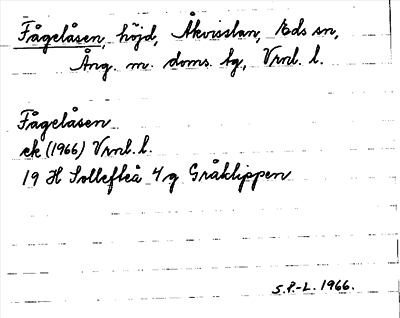 Fågelåsen, höjd, Åkvisslan, Eds sn,
Ång. m. doms. tg, Vrnl. l.
Fågelåsen
ek (1966) Vrnl. l.
19 H Sollefteå 4g Gråklippen
S.P.-L. 1966.